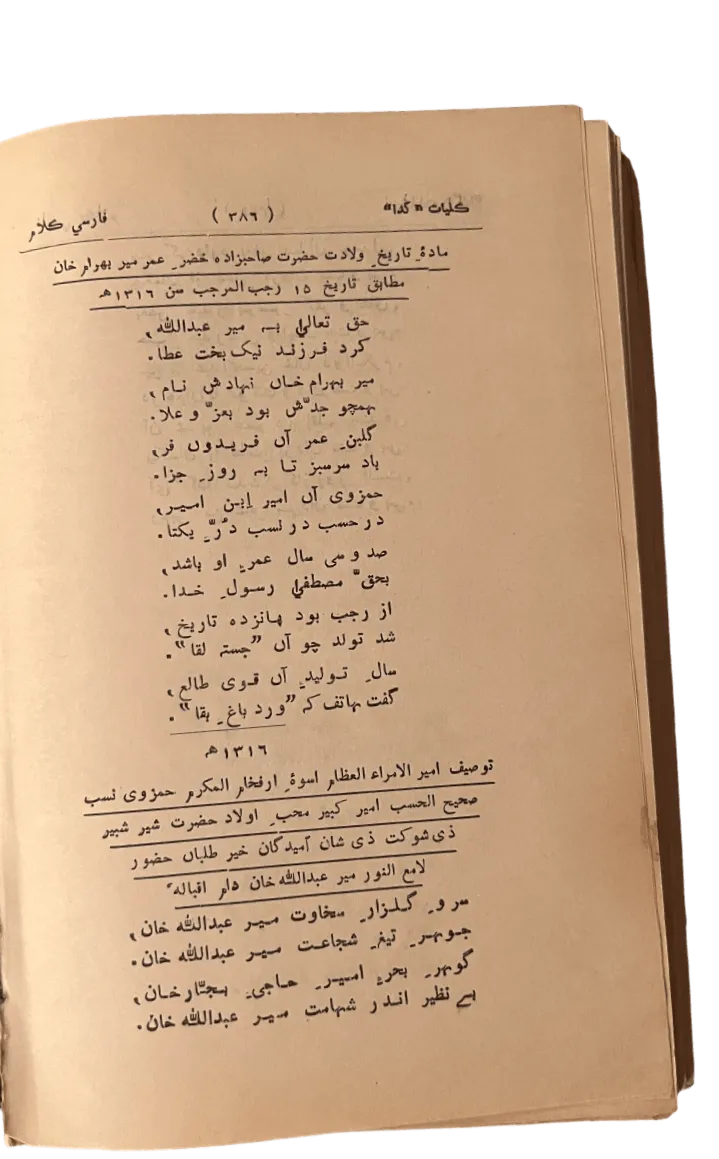 ڪليات "گدا" ( ۳۸۶ ) فارسي ڪلام
مادهٔ تاريخِ ولادت حضرت صاحبزاده خضرِ عمر مير بهرام خان
مطابق تاريخ ۱۵ رجب المرجب سن ۱۳۱۶ھ
حق تعاليٰ بہ مير عبدالله،
کرد فرزند نيک بخت عطا.
مير بهرام خاں نهادش نام،
همچو جدّش بود بعزّ و علا.
گلبنِ عمر آں فريدوں فر،
باد سرسبز تا بہ روزِ جزا.
حمزوی آں امير اِبن امير،
در حسب در نسب دُرِّ يکتا.
صد و سی سال عمرِ او باشد،
بحقِّ مصطفيٰ رسولِ خدا.
از رجب بود پانزده تاريخ،
شد تولد چو آں "جستہ لقا".
سالِ توليدِ آں قوی طالع،
گفت هاتف کہ "وردِ باغِ بقا".
۱۳۱۶ھ
توصيف امير الامراء العظام اسوهٔ ارفخام المکرم حمزوی نسب
صحيح الحسب امير کبير محبِ اولاد حضرت شير شبير
ذی شوکت ذی شان اميدگان خير طلباں حضور
لامع النور مير عبدالله خان دام اقبالہٗ
سروِ گلزارِ سخاوت مير عبدالله خان،
جوهرِ تيغِ شجاعت مير عبدالله خان.
گوهرِ بحرِ اميرِ حاجیِ بجّار خان،
بے نظير اندر شهامت مير عبدالله خان.